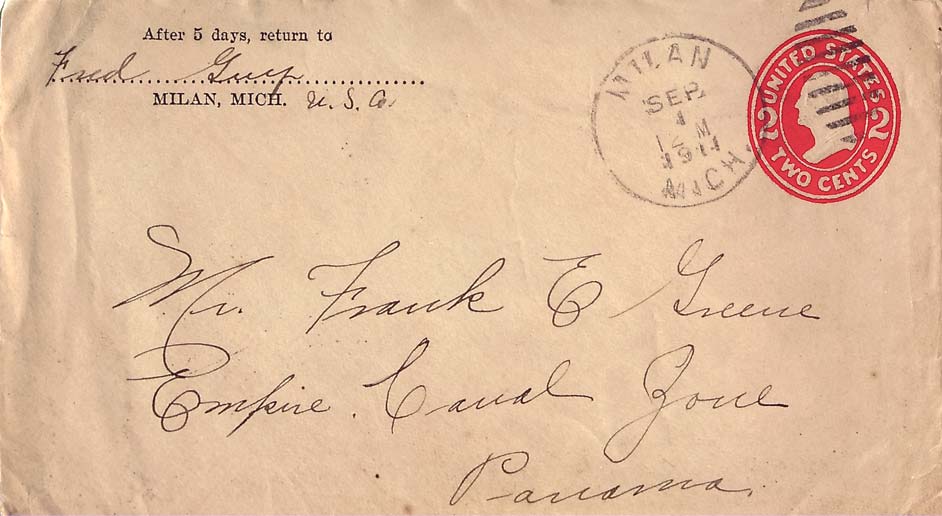 After 5 days, return to
Fred
MILAN, MICH. U.S.
MILAN
SEP
1
12 M
1911
MICH.
UNITED STATES
2 2
TWO CENTS
Mr. Frank E Greene
Empire. Canal Zone
Panama.